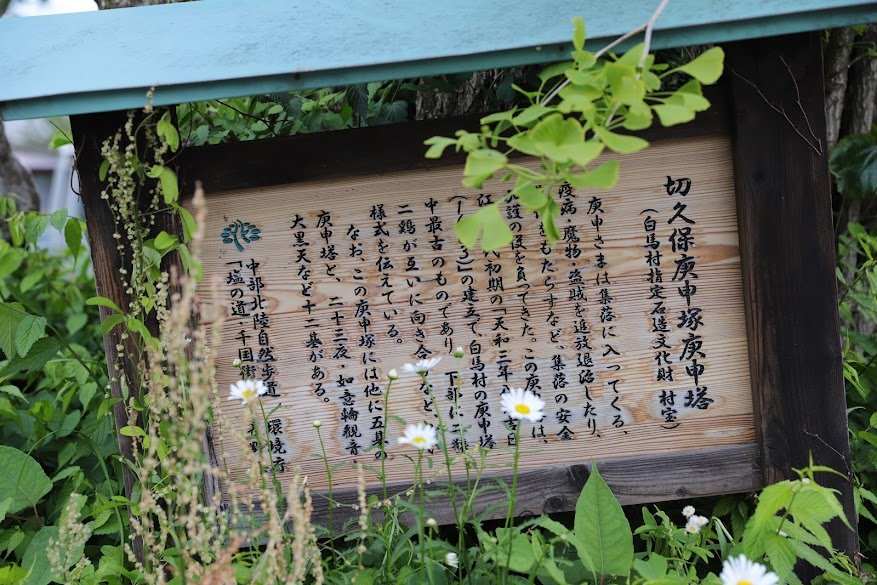 切久保庚申塚庚申塔
(白馬村指定石造文化財 村宝)
庚申さまは集落に入ってくる、
疫病、魔物、盗賊を追放退治したり、
をもたらすなど、集落の安全
護の役を負ってきた。この庚 は、
江 代初期の「天和三年 吉日
の建立で、白馬村の庚申塔
中最古のものであり、下部に二猿
二鶏が互いに向き合 など
様式を伝えている。
なお、この庚申塚には他に五基の
庚申塔と、二十三夜・如意輪観音
大黒天など十二基がある。
中部北陸自然歩道 環境庁
「塩の道・千国街